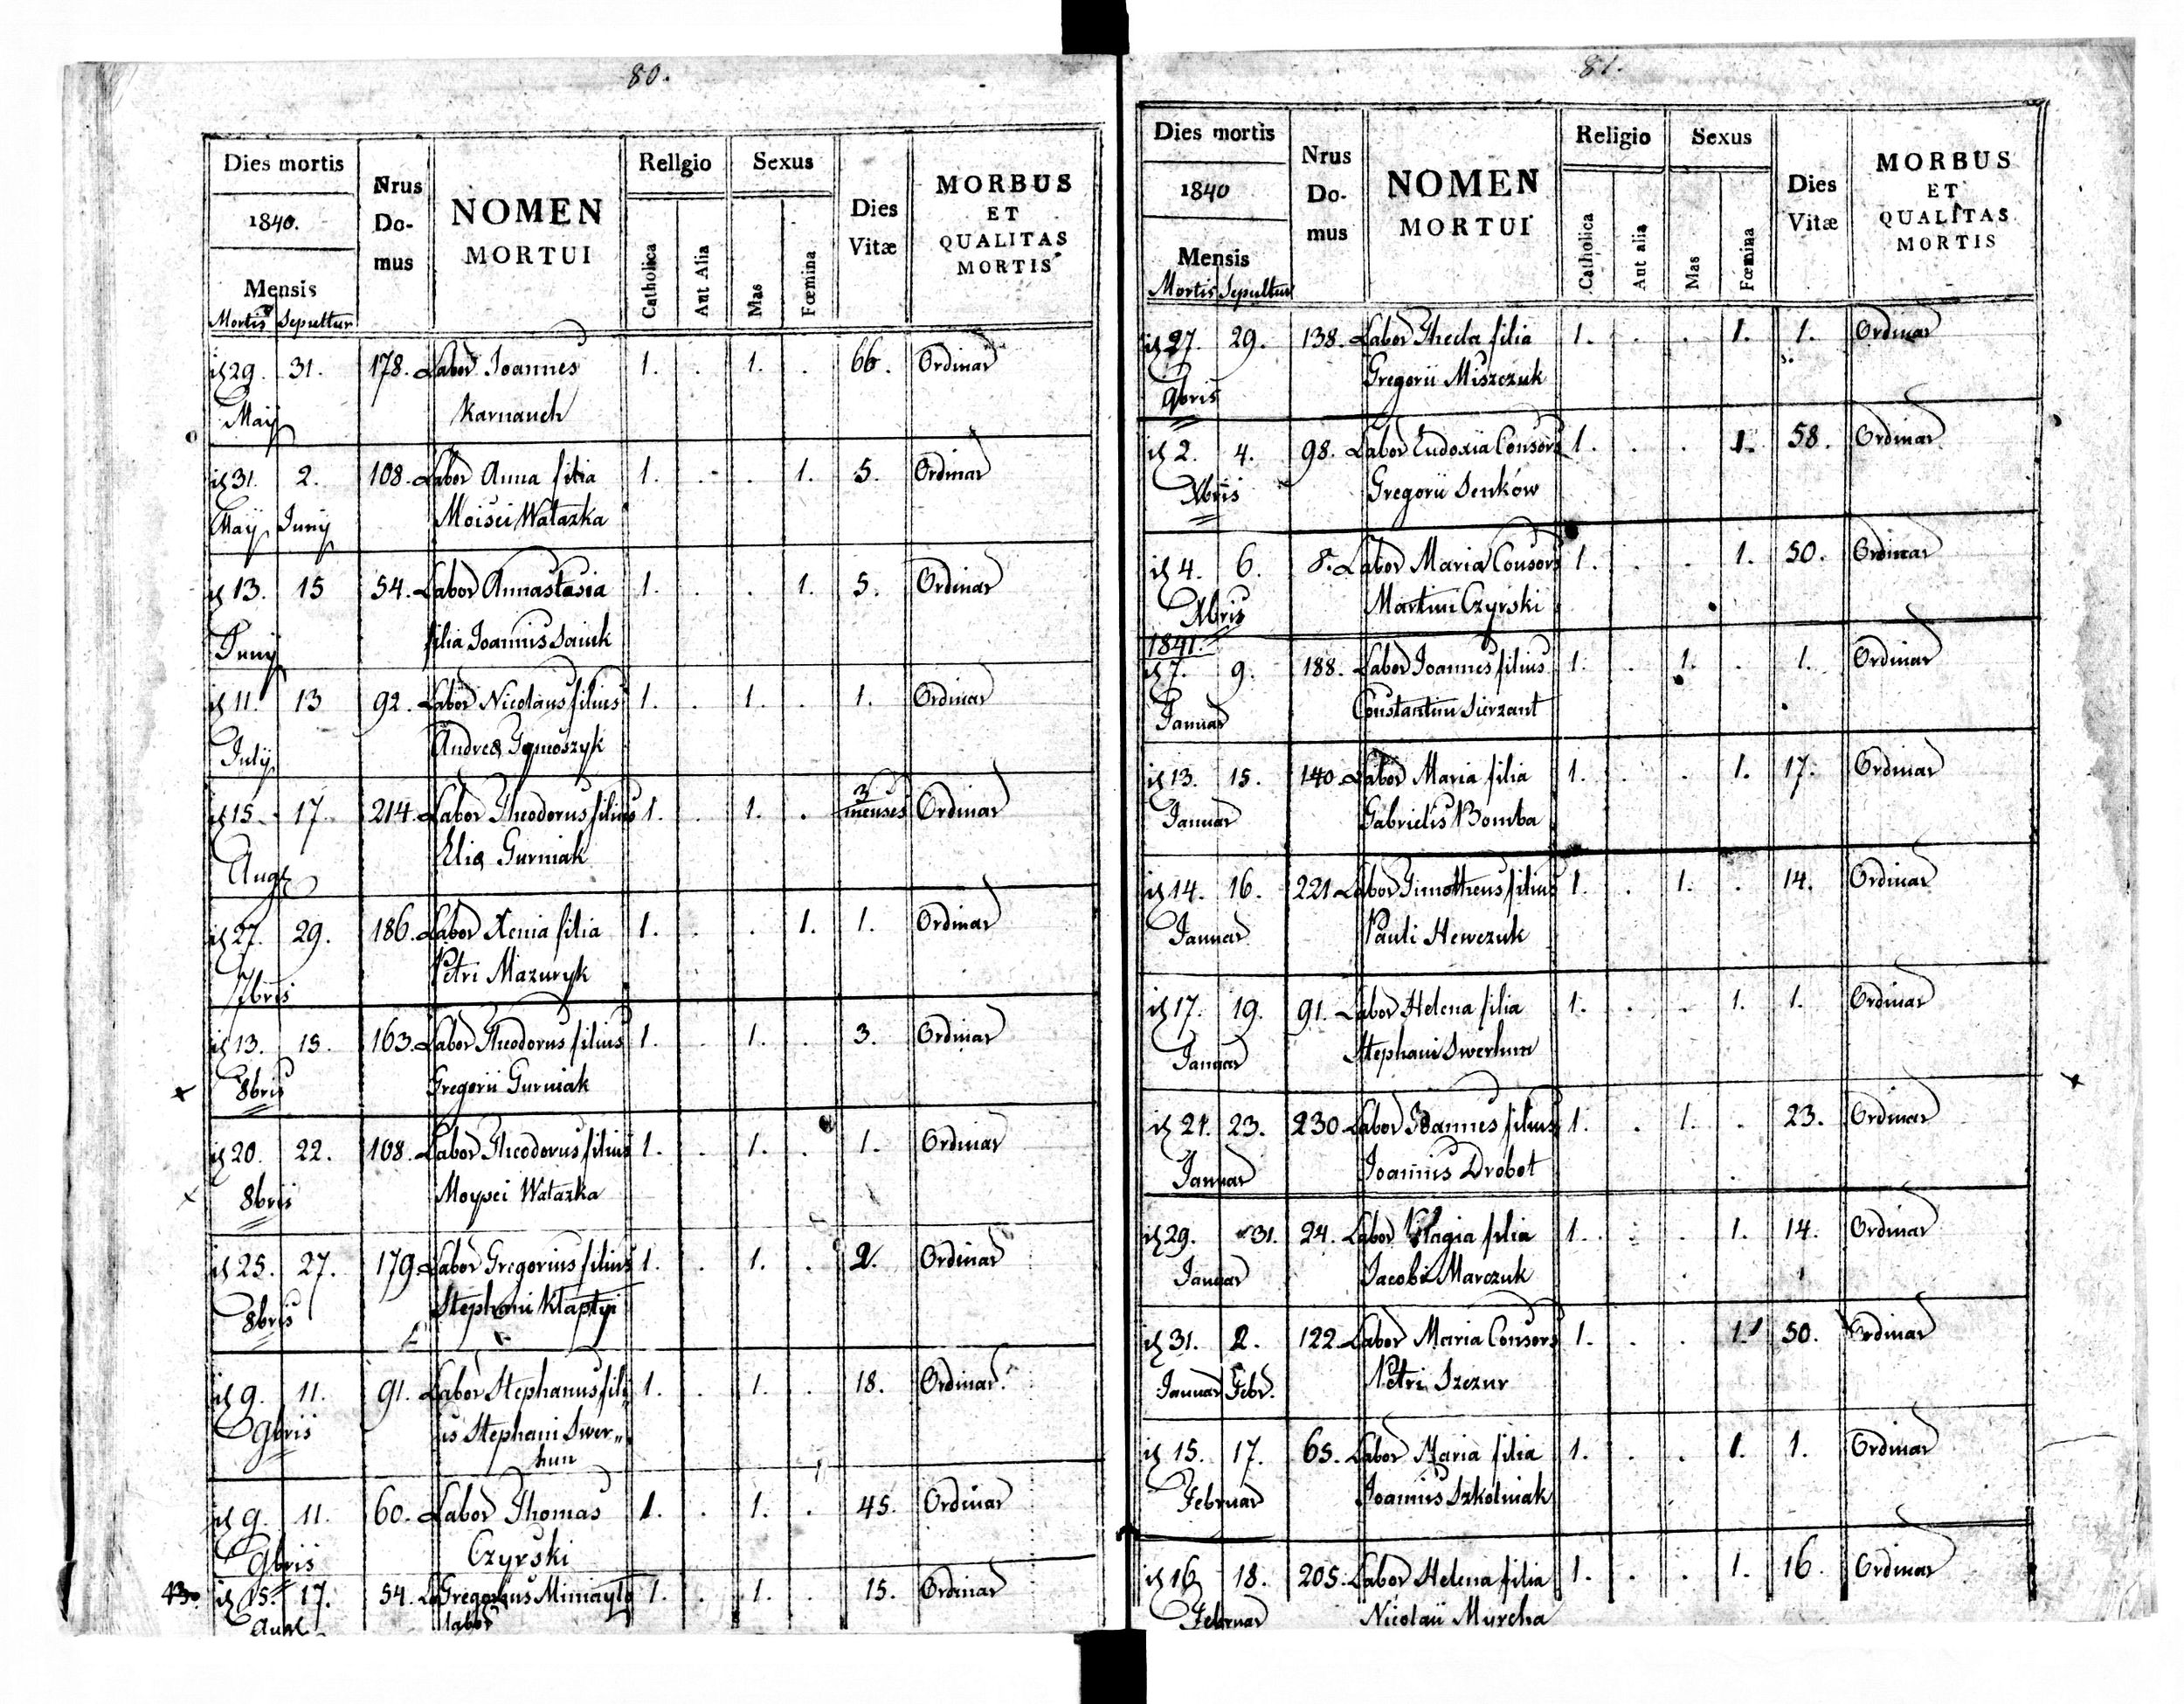 80.
Dies mortis
1840.
Mensis
Mortis Sepultur
Nrus Do- mus
NOMEN
MORTUI
Religio
Catholica
Aut Alia
Sexus
Mas
Fœmina
Dies Vitæ
MORBUS
ET
QUALITAS
MORTIS
29. 31. 178. Labor Joannes 1. . 1. . 66. Ordinar
May Karnauch
31. 2. 108. Labor Anna filia 1. . . 1. 5. Ordinar
May Juny Moisei Watazka
13. 15 54. Labor Annastasia 1. . . 1. 5. Ordinar
Juny filia Joannis Sauik
11. 13 92. Labor Nicolaus filius 1. . 1. . 1. Ordinar
July Andreæ
15. 17. 214. Labor Theodorus filius 1. . 1. . 3 menses Ordinar
Aug Eliæ Gurniak
27. 29. 186. Labor Xenia filia 1. . . 1. 1. Ordinar
7bris Petri Mazuryk
13. 15. 163. Labor Theodorus filius 1. . 1. . 3. Ordinar
8bris Gregorii Gurniak
20. 22. 108. Labor Theodorus filius 1. . 1. . 1. Ordinar
8bris Moysei Watazka
25. 27. 179. Labor Gregorius filius 1. . 1. . 2. Ordinar
8bris Stephani Kłaptyi
9. 11. 91. Labor Stephanus fili 1. . 1. . 18. Ordinar
9bris us Stephani Swer„
hun
9. 11. 60. Labor Thomas 1. . 1. . 45. Ordinar
9bris Czyrski
13. 15. 17. 54. Gregorius Miniayło 1. . 1. . 15. Ordinar
Aug labor
81.
Dies mortis
1840
Mensis
Mortis Sepultur
Nrus Do- mus
NOMEN
MORTUI
Religio
Catholica
Aut alia
Sexus
Mas
Fœmina
Dies Vitæ
MORBUS
ET
QUALITAS
MORTIS
27. 29. 138. Labor Thecla filia 1. . . 1. 1. Ordinar
9bris Gregorii Miszczuk
2. 4. 98. Labor Eudoxia Consors 1. . . 1. 58. Ordinar
Xbris Gregorii Senków
4. 6. 8. Labor Maria Consors 1. . . 1. 50. Ordinar
Xbris Martini Czyrski
1841.
7. 9. 188. Labor Joannes filius 1. . 1. . 1. Ordinar
Januar Constantini Sierzant
13. 15. 140. Labor Maria filia 1. . . 1. 17. Ordinar
Januar Gabrielis Bomba
14. 16. 221 Labor Timotheus filius 1. . 1. . 14. Ordinar
Januar Pauli Hewczuk
17. 19. 91. Labor Helena filia 1. . . 1. 1. Ordinar
Januar Stephani Swerhun
21. 23. 230. Labor Joannes filius 1. . 1. . 23. Ordinar
Januar Joannis Drobot
29. 31. 24. Labor Plagia filia 1. . . 1. 14. Ordinar
Januar Jacobi Marczuk
31. 2. 122. Labor Maria Consors 1. . . 1. 50. Ordinar
Januar Febr. Petri Szczur
15. 17. 65. Labor Maria filia 1. . . 1. 1. Ordinar
Februar Joannis Szkolniak
16 18. 205. Labor Helena filia 1. . . 1. 16. Ordinar
Februar Nicolaii Myrcha